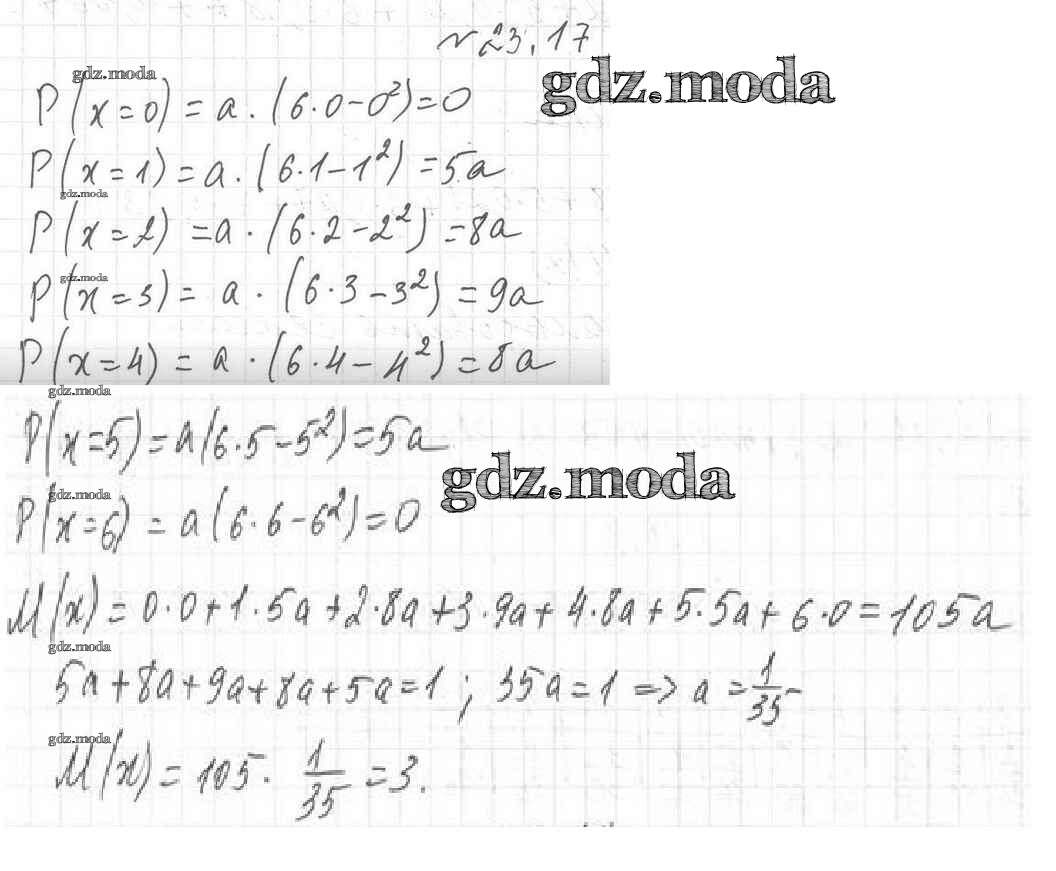 №23.17
gdz.moda
gdz.moda
P(x=0) = a·(6·0-0²)=0
P(x=1) = a·(6·1-1²)=5a
gdz.moda
P(x=2) =a·(6·2-2²)=8a
gdz.moda
P(x=3) = a·(6·3-3²)=9a
P(x=4) = a·(6·4-4²)=8a
gdz.moda
P(x=5)=a(6·5-5²)=5a
gdz.moda
gdz.moda
P(x=6) = a(6·6-6²)=0
M(x) = 0·0+1·5a+2·8a+3·9a+4·8a+5·5a+6·0=105a
gdz.moda
5a+8a+9a+8a+5a=1; 35a=1 => a=1/35
gdz.moda
M(x) = 105·1/35=3.